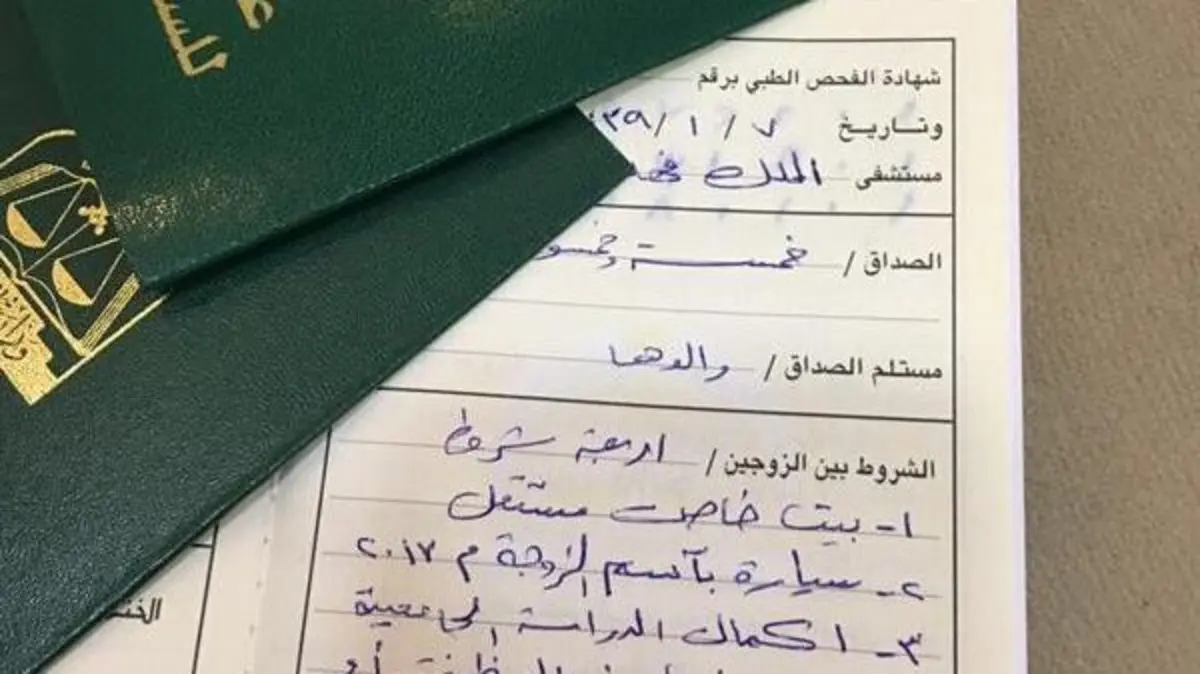 شهادة الفحص الطبي برقم
وتاريخ ٧ / ١ / ٣٩
مستشفى الملك
الصداق / خمسة
مستلم الصداق / والدها
الشروط بين الزوجين / اربعة شروط
١- بيت خاص مستقل
٢- سيارة بآسم الزوجة م ٢٠١٧
٣- اكمال الدراسة الجامعية